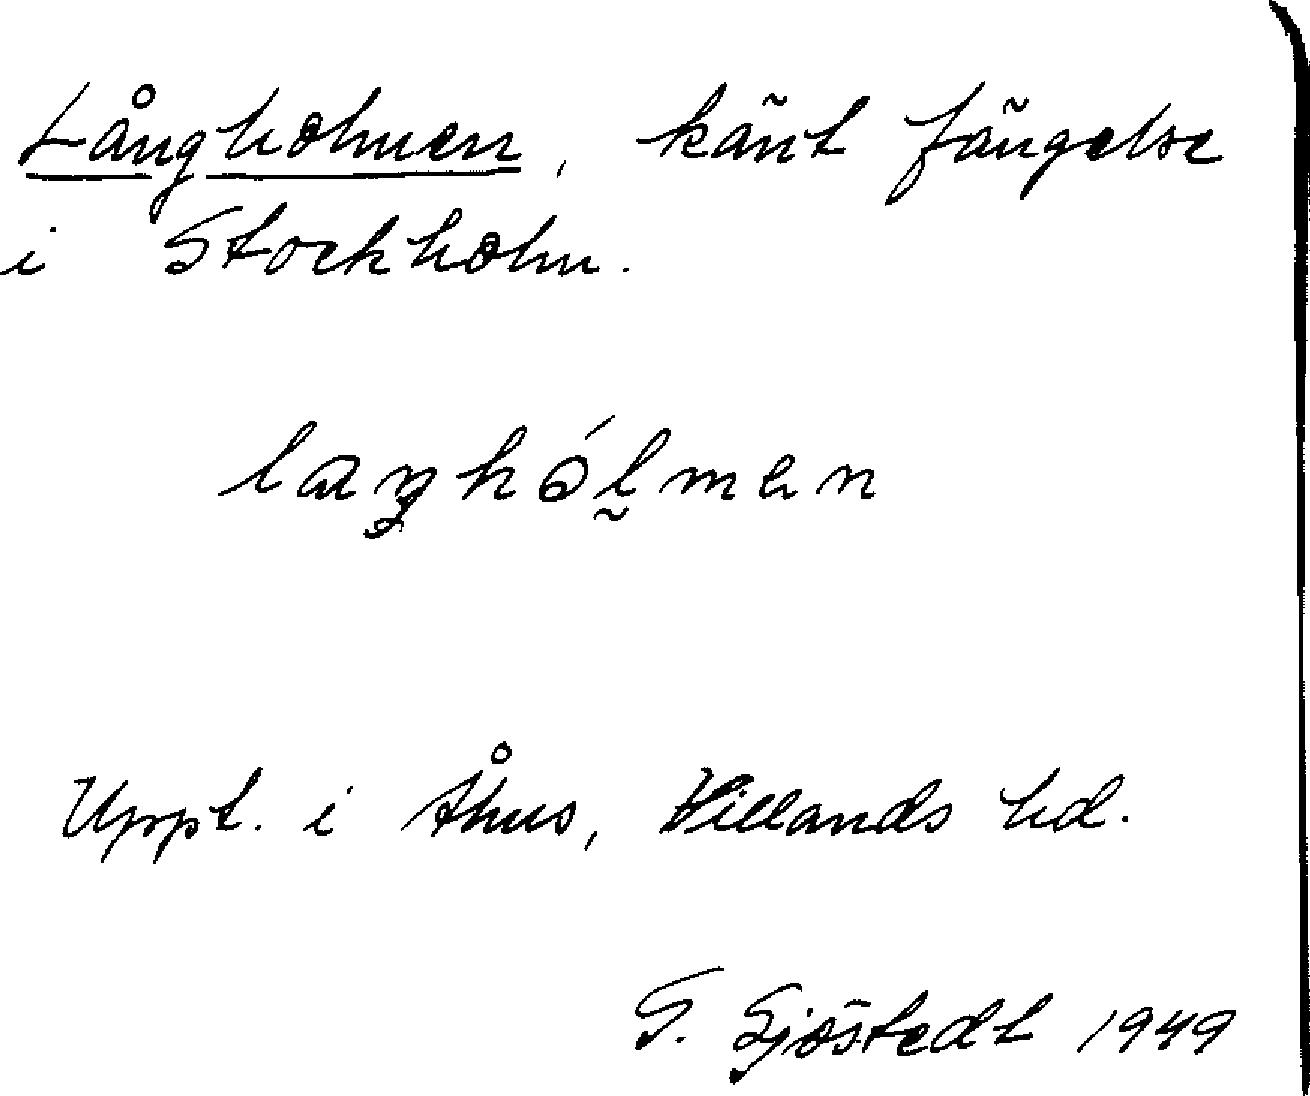 Långholmen, känt fängelse
i Stockholm.
Uppt. i Åhus, Villands hd.
G. Sjöstedt 1949